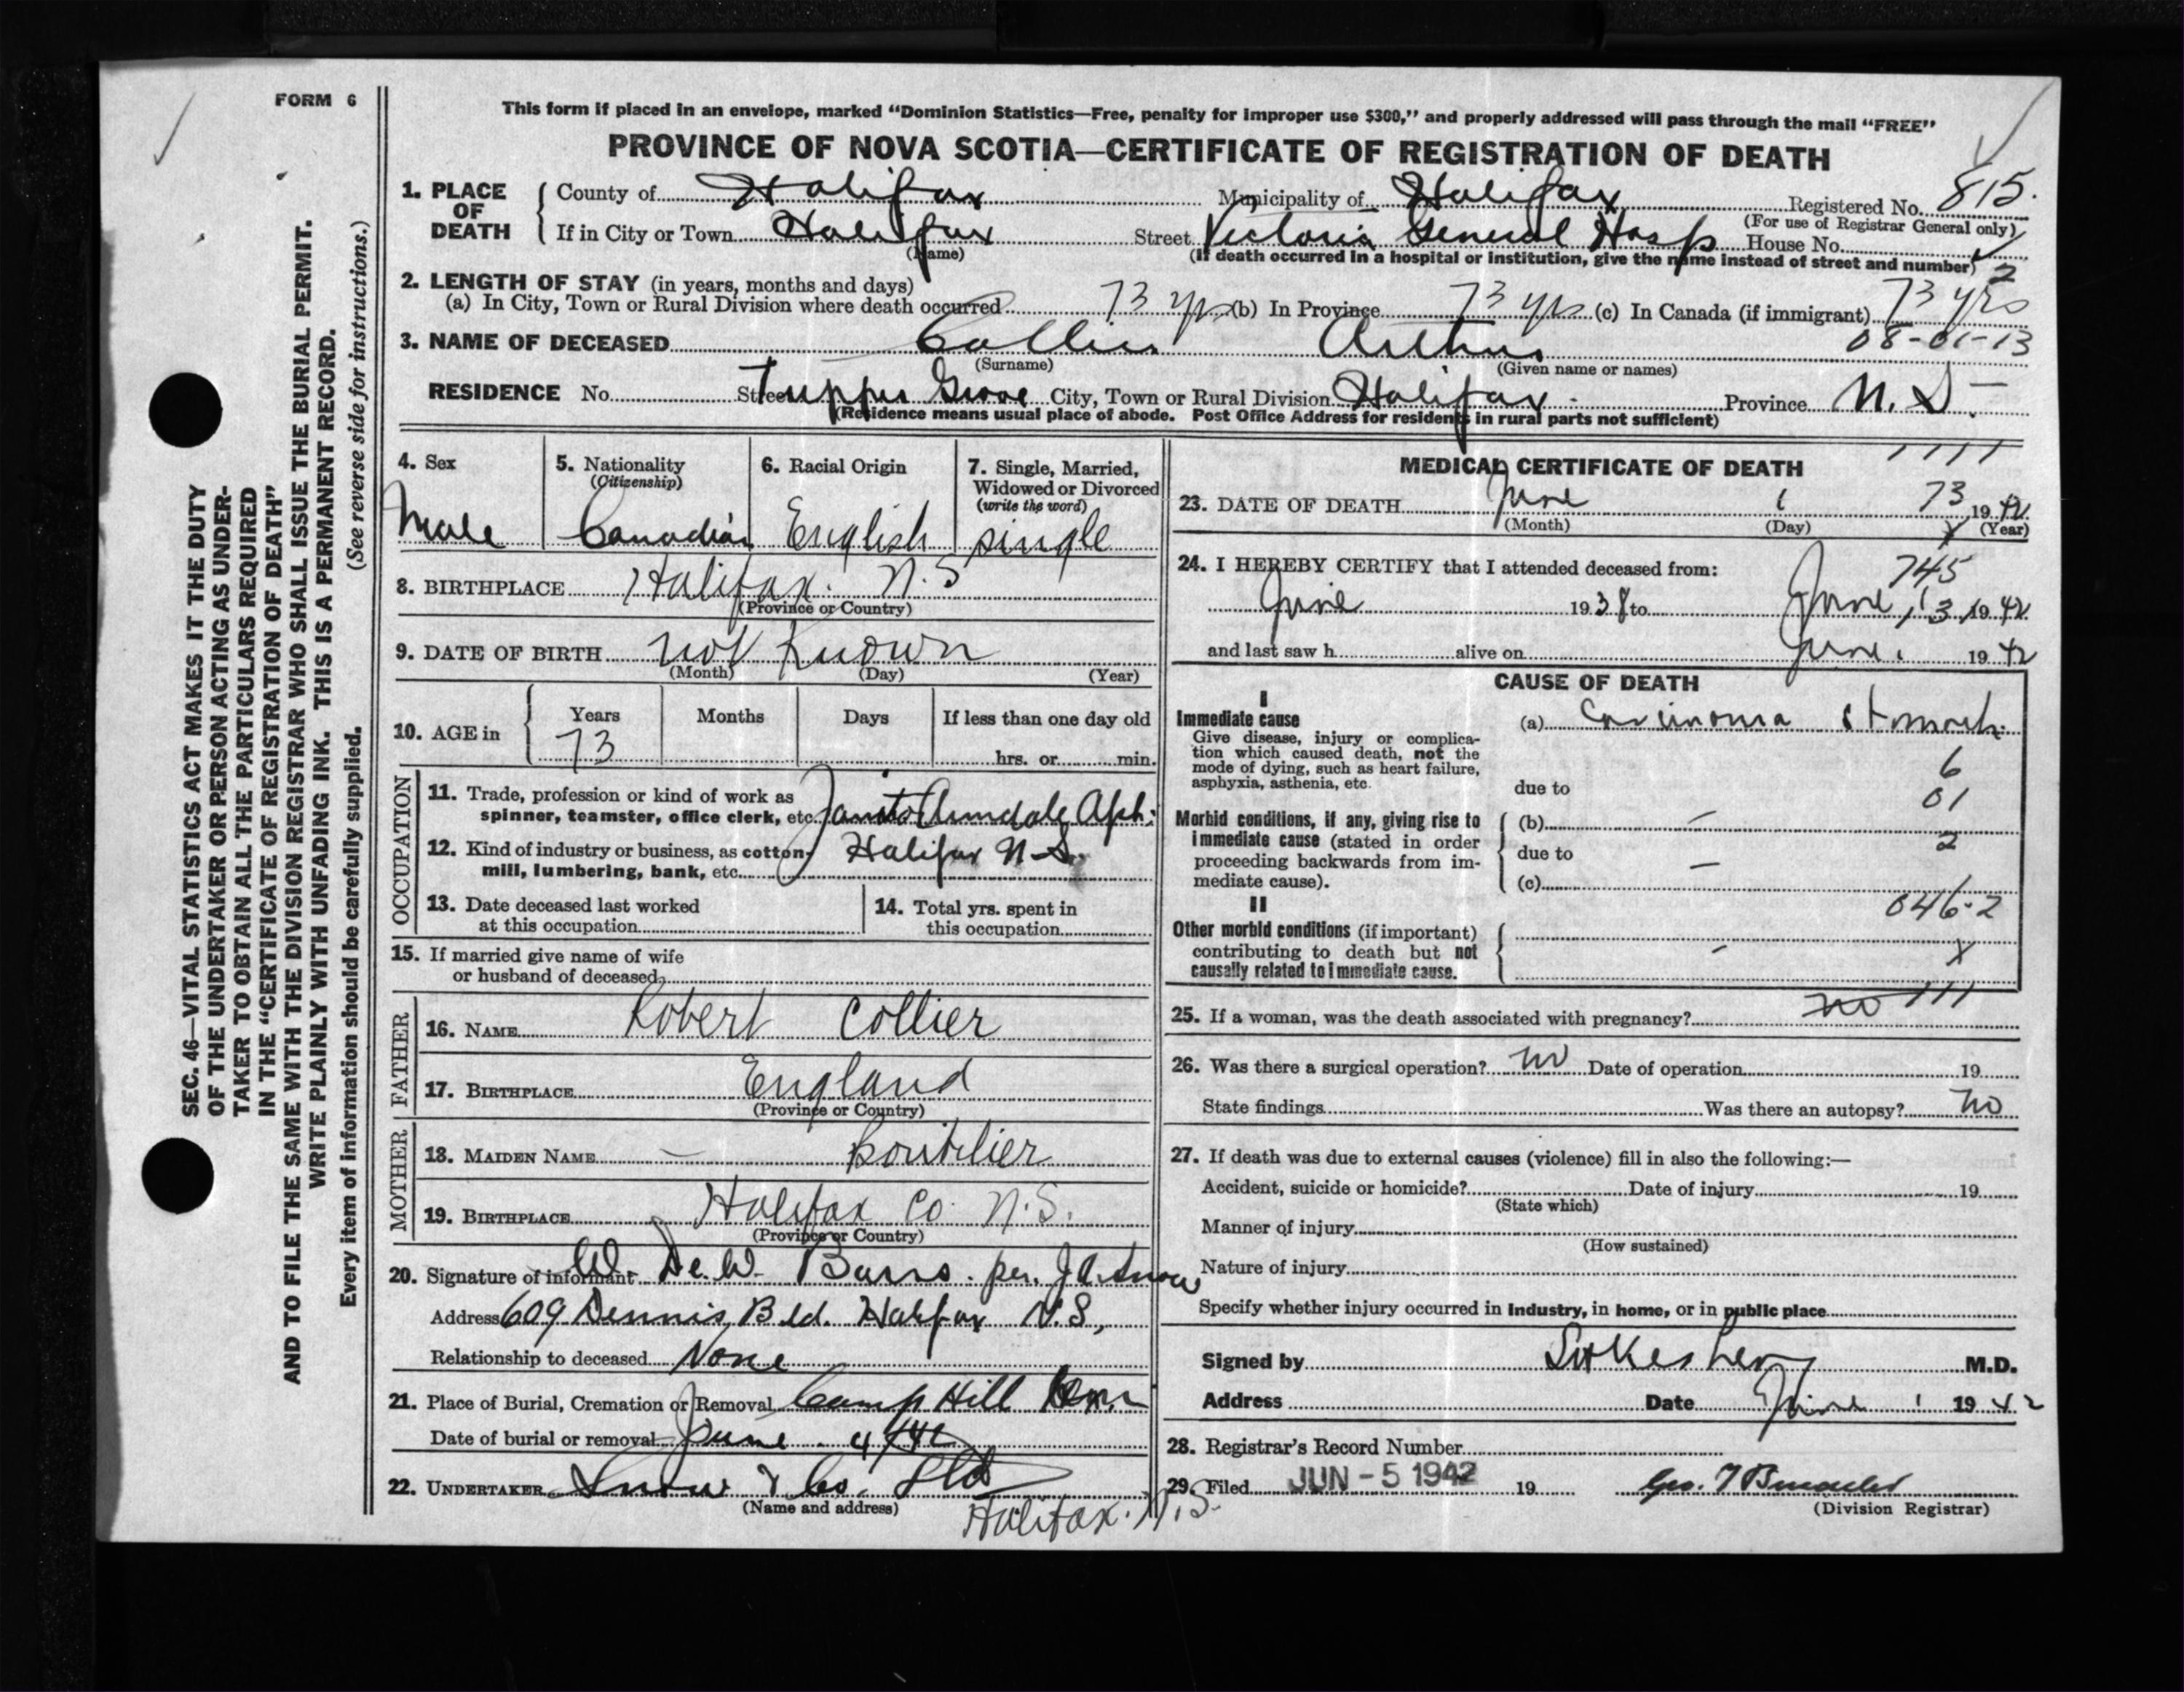 FORM 6
This form if placed in an envelope, marked "Dominion Statistics—Free, penalty for improper use $300," and properly addressed will pass through the mail "FREE"
PROVINCE OF NOVA SCOTIA—CERTIFICATE OF REGISTRATION OF DEATH
1. PLACE OF DEATH
County of Halifax Municipality of Halifax Registered No. 815.
(For use of Registrar General only)
If in City or Town Halifax Street Victoria General Hosp House No.
(Name) (If death occurred in a hospital or institution, give the name instead of street and number) 2
2. LENGTH OF STAY (in years, months and days)
(a) In City, Town or Rural Division where death occurred 73 yrs (b) In Province 73 yrs (c) In Canada (if immigrant) 73 yrs
3. NAME OF DECEASED Collier Arthur 08-01-13
(Surname) (Given name or names)
RESIDENCE No. Street Tupper Grove City, Town or Rural Division Halifax Province N.S.
(Residence means usual place of abode. Post Office Address for residents in rural parts not sufficient)
4. Sex
Male
5. Nationality
(Citizenship)
Canadian
6. Racial Origin
English
7. Single, Married,
Widowed or Divorced
(write the word)
single
8. BIRTHPLACE Halifax. N.S
(Province or Country)
9. DATE OF BIRTH not known
(Month) (Day) (Year)
10. AGE in
Years Months Days If less than one day old
73 hrs. or min.
OCCUPATION
11. Trade, profession or kind of work as
spinner, teamster, office clerk, etc. Janitor
12. Kind of industry or business, as cotton- Halifax N.S.
mill, lumbering, bank, etc.
13. Date deceased last worked
at this occupation
14. Total yrs. spent in
this occupation
15. If married give name of wife
or husband of deceased
FATHER
16. NAME Robert Collier
17. BIRTHPLACE England
(Province or Country)
MOTHER
18. MAIDEN NAME — Boutilier
19. BIRTHPLACE Halifax Co. N.S.
(Province or Country)
20. Signature of informant W. DeW. Barss. per. J.A. Snow
Address 609 Dennis Bld. Halifax N.S,
Relationship to deceased None
21. Place of Burial, Cremation or Removal Camp Hill Cem.
Date of burial or removal June 4/42
22. UNDERTAKER Snow & Co. Ltd
(Name and address) Halifax. N.S.
MEDICAL CERTIFICATE OF DEATH 1111
23. DATE OF DEATH June 1 73 1942
(Month) (Day) (Year)
24. I HEREBY CERTIFY that I attended deceased from: 745
June 1938 to June 1942
and last saw h alive on June 1 1942
CAUSE OF DEATH
I
Immediate cause
Give disease, injury or complica-
tion which caused death, not the
mode of dying, such as heart failure,
asphyxia, asthenia, etc.
(a) Carcinoma stomach.
6
due to 01
Morbid conditions, if any, giving rise to
immediate cause (stated in order
proceeding backwards from im-
mediate cause).
(b) —
due to — 2
(c)
046.2
II
Other morbid conditions (if important)
contributing to death but not
causally related to immediate cause.
- X
25. If a woman, was the death associated with pregnancy? no 111
26. Was there a surgical operation? no Date of operation 19
State findings Was there an autopsy? no
27. If death was due to external causes (violence) fill in also the following:—
Accident, suicide or homicide? Date of injury 19
(State which)
Manner of injury
(How sustained)
Nature of injury
Specify whether injury occurred in industry, in home, or in public place
Signed by M.D.
Address Date June 1 1942
28. Registrar's Record Number
29. Filed JUN - 5 1942 19
(Division Registrar)
SEC. 46—VITAL STATISTICS ACT MAKES IT THE DUTY
OF THE UNDERTAKER OR PERSON ACTING AS UNDER-
TAKER TO OBTAIN ALL THE PARTICULARS REQUIRED
IN THE "CERTIFICATE OF REGISTRATION OF DEATH"
AND TO FILE THE SAME WITH THE DIVISION REGISTRAR WHO SHALL ISSUE THE BURIAL PERMIT.
WRITE PLAINLY WITH UNFADING INK. THIS IS A PERMANENT RECORD.
Every item of information should be carefully supplied. (See reverse side for instructions.)